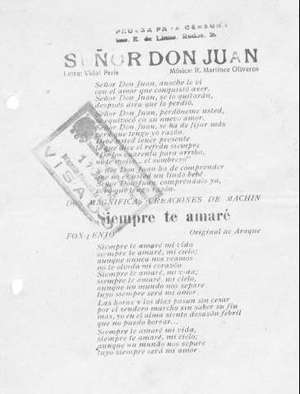 PRUEBA PARA CENSURA
SEÑOR DON JUAN
Letra: Vidal Peris Música: R. Martínez Oliveros
Señor Don Juan, anoche le vi
con el amor que conquistó ayer.
Señor Don Juan, se lo quitarán,
después dirá que lo perdió.
Señor Don Juan, perdóneme usted,
se equivocó en su nuevo amor.
Señor Don Juan, se ha de fijar más
porque tengo yo razón.
usted tener presente
que dice el refrán siempre
cuarenta para arriba,
no te mojes... el sombrero"
Don Juan ha de comprender
usted un lindo bebé
Señor Don Juan, compréndalo ya,
que tengo razón.
DOS MAGNIFICAS CREACIONES DE MACHIN
Siempre te amaré
FOX LENTO Original de Araque
Siempre te amaré mi vida
siempre te amaré, mi cielo;
aunque nunca nos veamos
no te olvida mi corazón
Siempre te amaré, mi vida;
siempre te amaré, mi cielo,
aunque un mundo nos separe
tuyo siempre será mi amor
Las horas y los días pasan sin cesar
por el sendero marcha sin saber su fin
mas, yo en el alma siento desazón febril
que no puedo borrar...
Siempre te amaré mi vida
siempre te amaré, mi cielo;
aunque un mundo nos separe
tuyo siempre será mi amor
VISADO